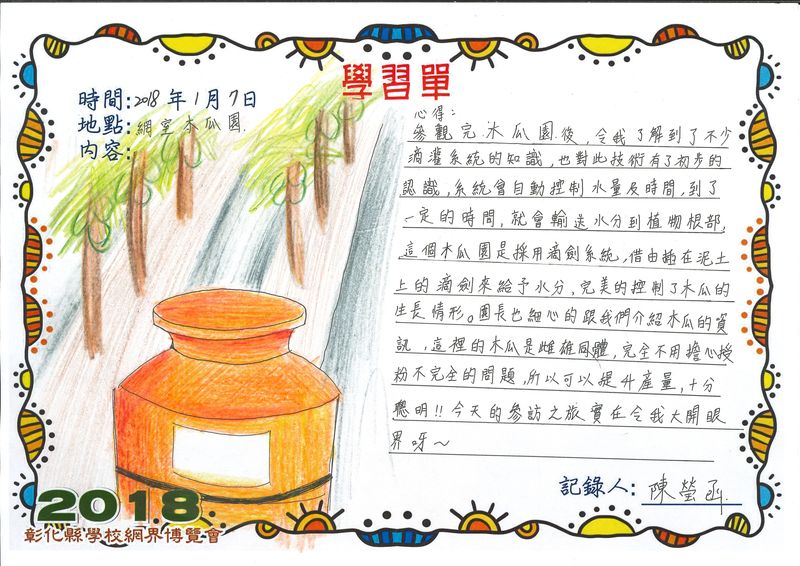 學習單
時間:2018年1月7日
地點:網室木瓜園.
內容:
心得:
參觀完木瓜園後，令我了解到了不少
滴灌系統的知識，也對此技術有了初步的
認識，系統會自動控制水量及時間，到了
一定的時間，就會輸送水分到植物根部，
這個木瓜園是採用滴劍系統，借由插在泥土
上的滴劍來給予水分，完美的控制了木瓜的
生長情形。園長也細心的跟我們介紹木瓜的資
訊，這裡的木瓜是雌雄同體，完全不用擔心授
粉不完全的問題，所以可以提升產量，十分
聰明!!今天的參訪之旅實在令我大開眼
界呀～
記錄人:陳螢函
2018
彰化縣學校網界博覽會